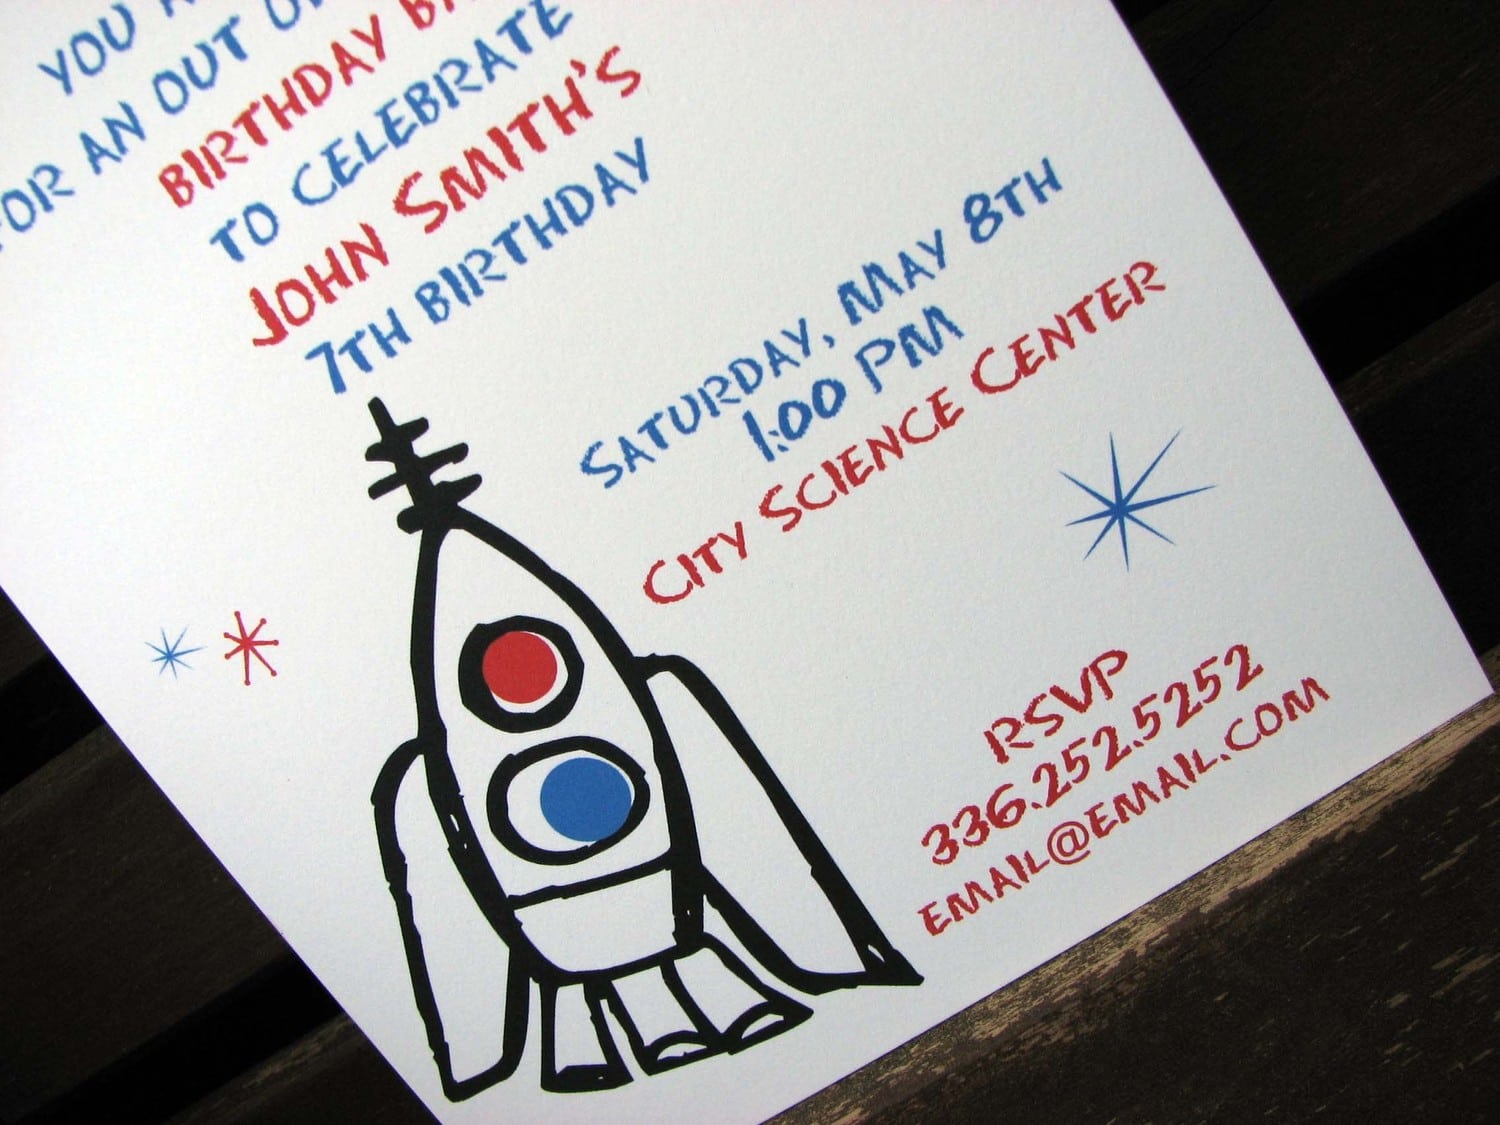 YOU
FOR AN OUT
BIRTHDAY
TO CELEBRATE
JOHN SMITH'S
7TH BIRTHDAY
SATURDAY, MAY 8TH
1:00 PM
CITY SCIENCE CENTER
RSVP
336.252.5252
EMAIL@EMAIL.COM